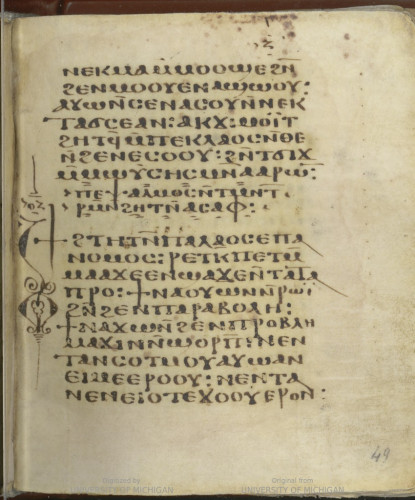 ⲛⲉⲕⲙⲁⲙⲙⲟⲟϣⲉϩⲛ̄
ϩⲉⲛⲙⲟⲟⲩⲉⲛⲁϣⲱⲟⲩ:
ⲁⲩⲱⲛ̄ⲥⲉⲛⲁⲥⲟⲩⲛ̄ⲛⲉⲕ
ⲧⲁϭⲥⲉⲁⲛ: ⲁⲕϫⲓⲙⲟⲓⲧ
ϩⲏⲧϥ̄ⲙ̄ⲡⲉⲕⲗⲁⲟⲥⲛ̄ⲑⲉ
ⲛ̄ϩⲉⲛⲉⲥⲟⲟⲩ: ϩⲛ̄ⲧϭⲓϫ
ⲙ̄ⲙⲱⲩⲥⲏⲥⲙⲛⲁⲁⲣⲱ̄:
ⲡⲉⲯⲁⲗⲙⲟⲥⲛ̄ⲧⲙⲛ̄ⲧ
ⲣⲙⲛ̄ϩⲏⲧⲛ̄ⲁⲥⲁⲫ:
ⲟ̄ⲍ̄
ϯϩⲧⲏⲧⲛ̄ⲡⲁⲗⲁⲟⲥⲉⲡⲁ
ⲛⲟⲙⲟⲥ: ⲣⲉⲕⲧⲡⲉⲧⲙ̄
ⲙⲁⲁϫⲉⲉⲛϣⲁϫⲉⲛ̄ⲧⲁⲧⲁ
ⲡⲣⲟ: ϯⲛⲁⲟⲩⲱⲛⲛ̄ⲣⲱⲓ̈
ϩⲛ̄ϩⲉⲛⲡⲁⲣⲁⲃⲟⲗⲏ:
ϯⲛⲁϫⲱⲛ̄ϩⲉⲛⲡⲣⲟⲃⲗⲏ
ⲙⲁϫⲓⲛⲛ̄ϣⲟⲣⲡ: ⲛⲉⲛ
ⲧⲁⲛⲥⲟⲧⲙⲟⲩⲁⲩⲱⲁⲛ
ⲉⲓⲙⲉⲉⲣⲟⲟⲩ: ⲛⲉⲛⲧⲁ
ⲛⲉⲛⲉⲓⲟⲧⲉϫⲟⲟⲩⲉⲣⲟⲛ:
49
Digitized by
UNIVERSITY OF MICHIGAN
Original from
UNIVERSITY OF MICHIGAN